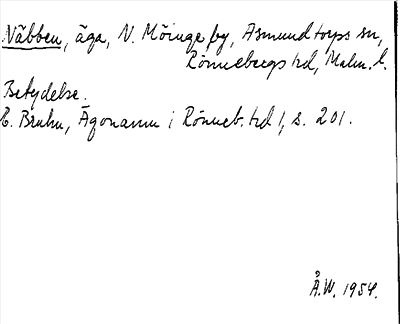 Näbben, äga, N. Möinge by, Asmundtorps sn,
Rönnebergs hd, Malm. l.
Betydelse.
E. Bruhn, Ägonamn i Rönneb. hd 1, s. 201.
Å.W. 1954.